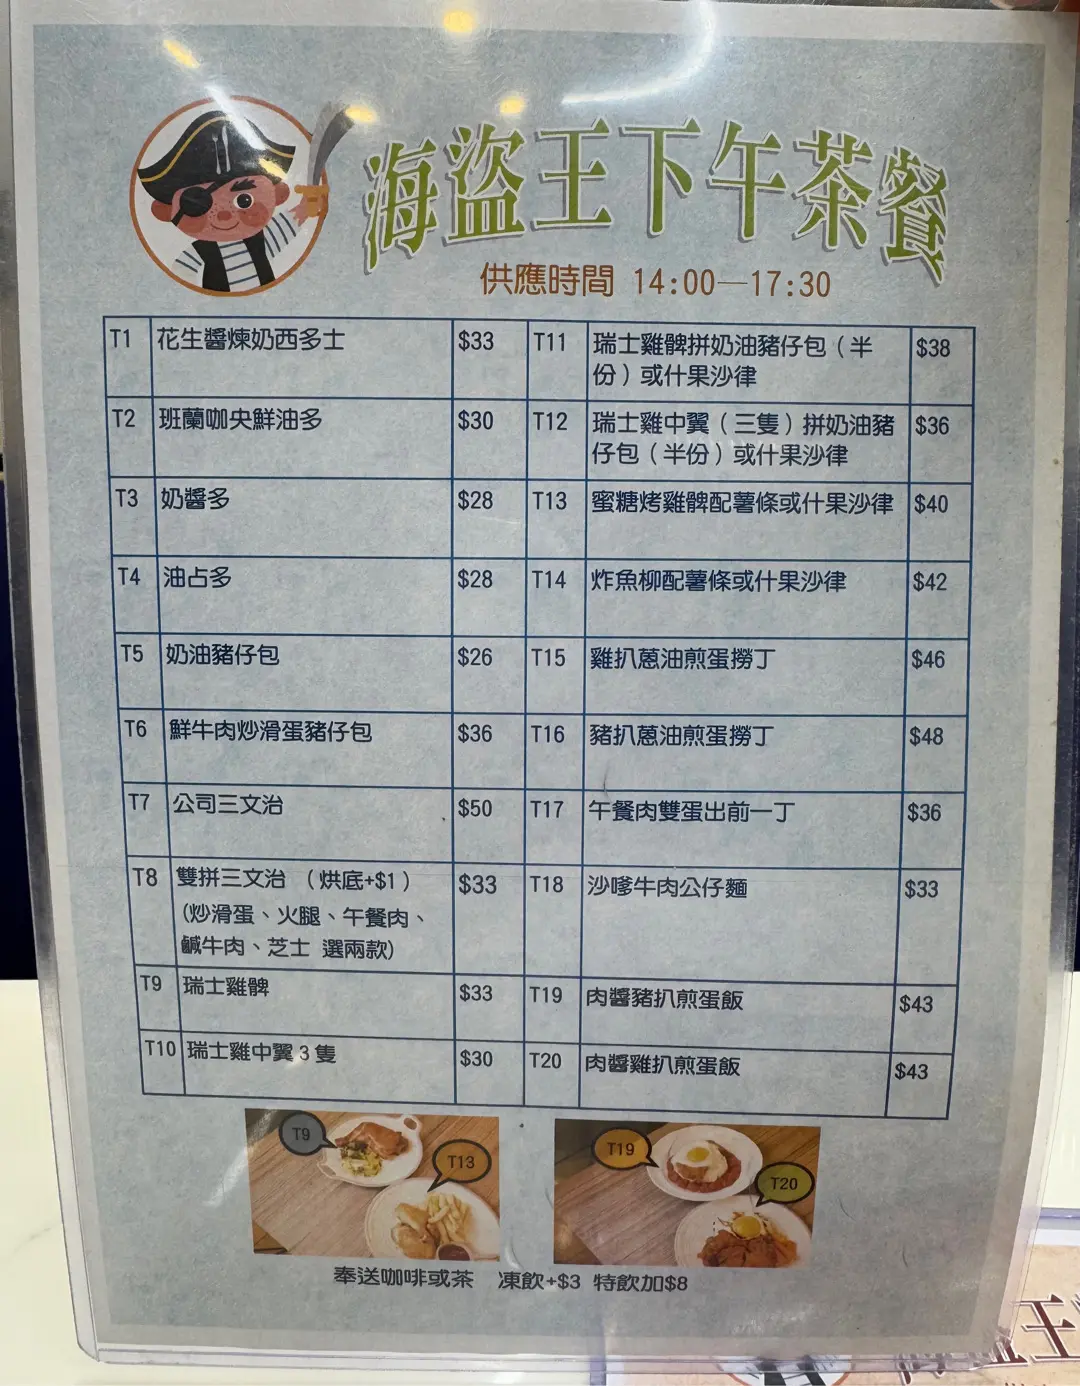 海盜王下午茶餐
供應時間 14:00—17:30
T1 花生醬煉奶西多士 $33
T2 班蘭咖央鮮油多 $30
T3 奶醬多 $28
T4 油占多 $28
T5 奶油豬仔包 $26
T6 鮮牛肉炒滑蛋豬仔包 $36
T7 公司三文治 $50
T8 雙拼三文治 （烘底+$1） $33
(炒滑蛋、火腿、午餐肉、
鹹牛肉、芝士 選兩款)
T9 瑞士雞髀 $33
T10 瑞士雞中翼 3 隻 $30
T11 瑞士雞髀拼奶油豬仔包（半 $38
份）或什果沙律
T12 瑞士雞中翼（三隻）拼奶油豬 $36
仔包（半份）或什果沙律
T13 蜜糖烤雞髀配薯條或什果沙律 $40
T14 炸魚柳配薯條或什果沙律 $42
T15 雞扒蔥油煎蛋撈丁 $46
T16 豬扒蔥油煎蛋撈丁 $48
T17 午餐肉雙蛋出前一丁 $36
T18 沙嗲牛肉公仔麵 $33
T19 肉醬豬扒煎蛋飯 $43
T20 肉醬雞扒煎蛋飯 $43
T9
T13
T19
T20
奉送咖啡或茶 凍飲+$3 特飲加$8
王